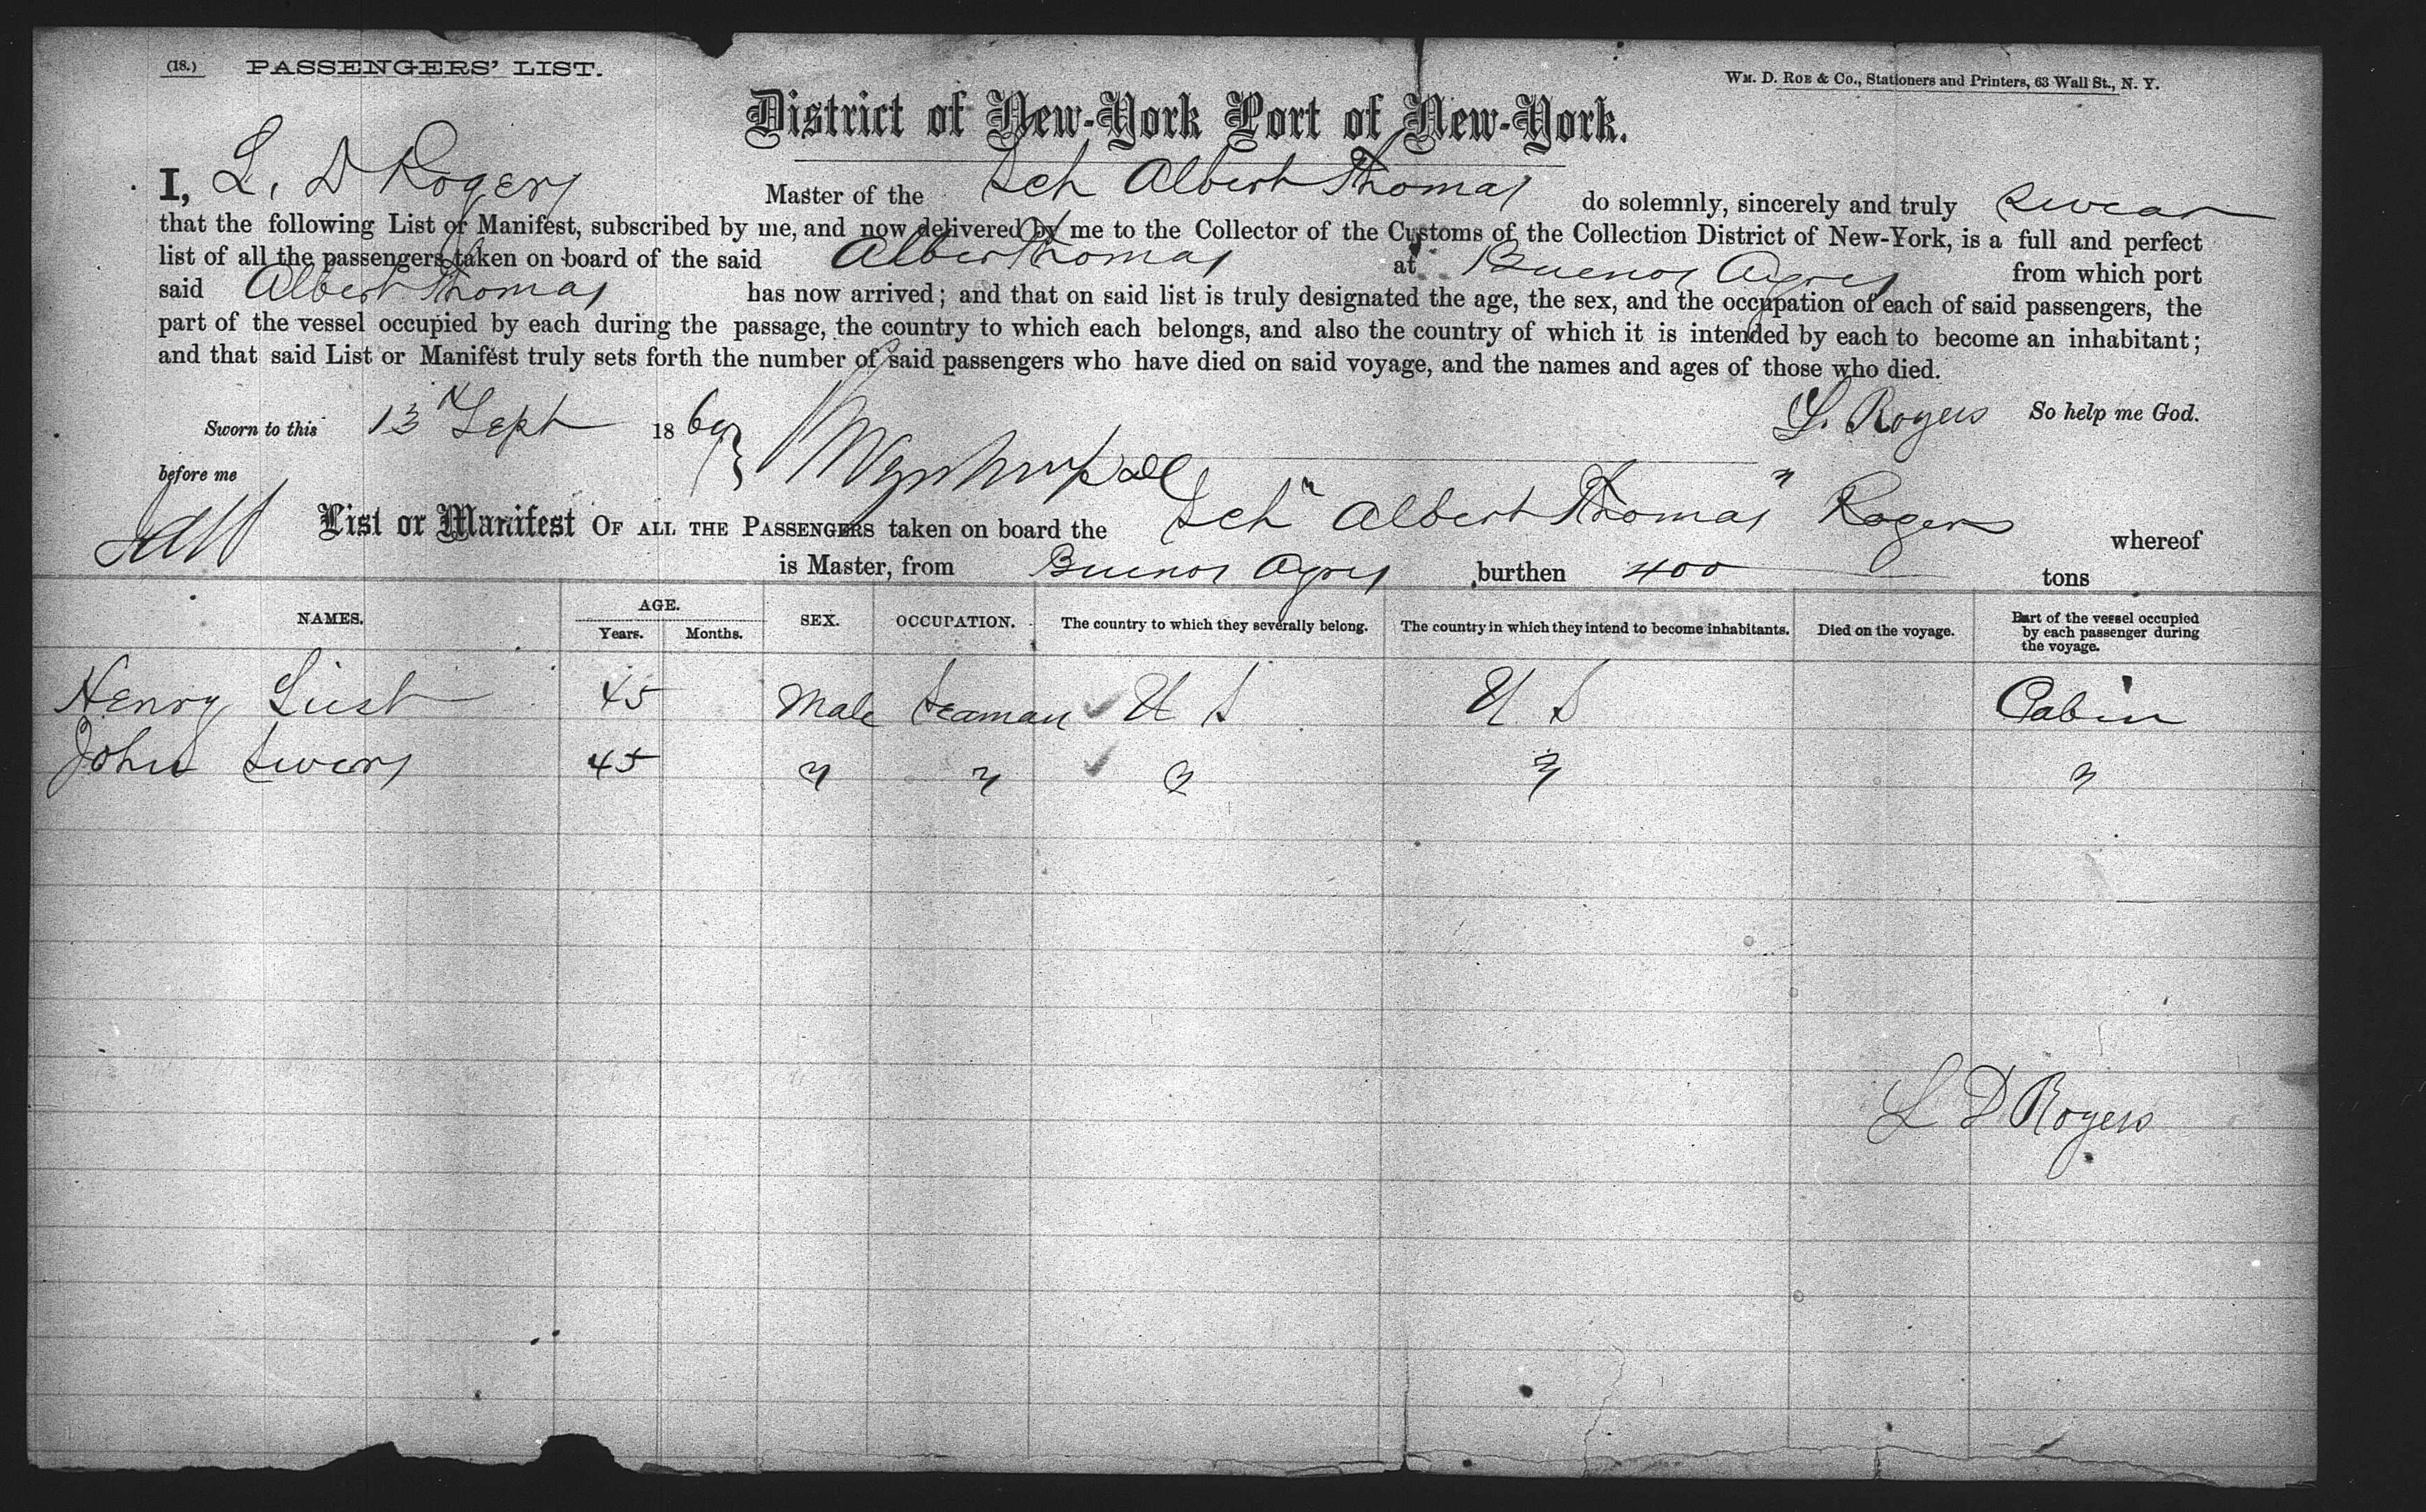 (18.) PASSENGERS' LIST.
WM. D. ROE & CO., Stationers and Printers, 63 Wall St., N. Y.
District of New-York Port of New-York.
I, L. D Rogers Master of the Sch Albert Thomas do solemnly, sincerely and truly swear
that the following List or Manifest, subscribed by me, and now delivered by me to the Collector of the Customs of the Collection District of New-York, is a full and perfect
list of all the passengers taken on board of the said Albert Thomas at Buenos Ayres from which port
said Albert Thomas has now arrived; and that on said list is truly designated the age, the sex, and the occupation of each of said passengers, the
part of the vessel occupied by each during the passage, the country to which each belongs, and also the country of which it is intended by each to become an inhabitant;
and that said List or Manifest truly sets forth the number of said passengers who have died on said voyage, and the names and ages of those who died.
L. Rogers So help me God.
Sworn to this 13 Sept 1869
before me
List or Manifest OF ALL THE PASSENGERS taken on board the Sch "Albert Thomas" Rogers whereof
is Master, from Buenos Ayres burthen 400 tons
NAMES. AGE. Years. Months. SEX. OCCUPATION. The country to which they severally belong. The country in which they intend to become inhabitants. Died on the voyage. Part of the vessel occupied by each passenger during the voyage.
Henry 45 Male Seaman U S U S Cabin
John 45 " " " " "
L D Rogers